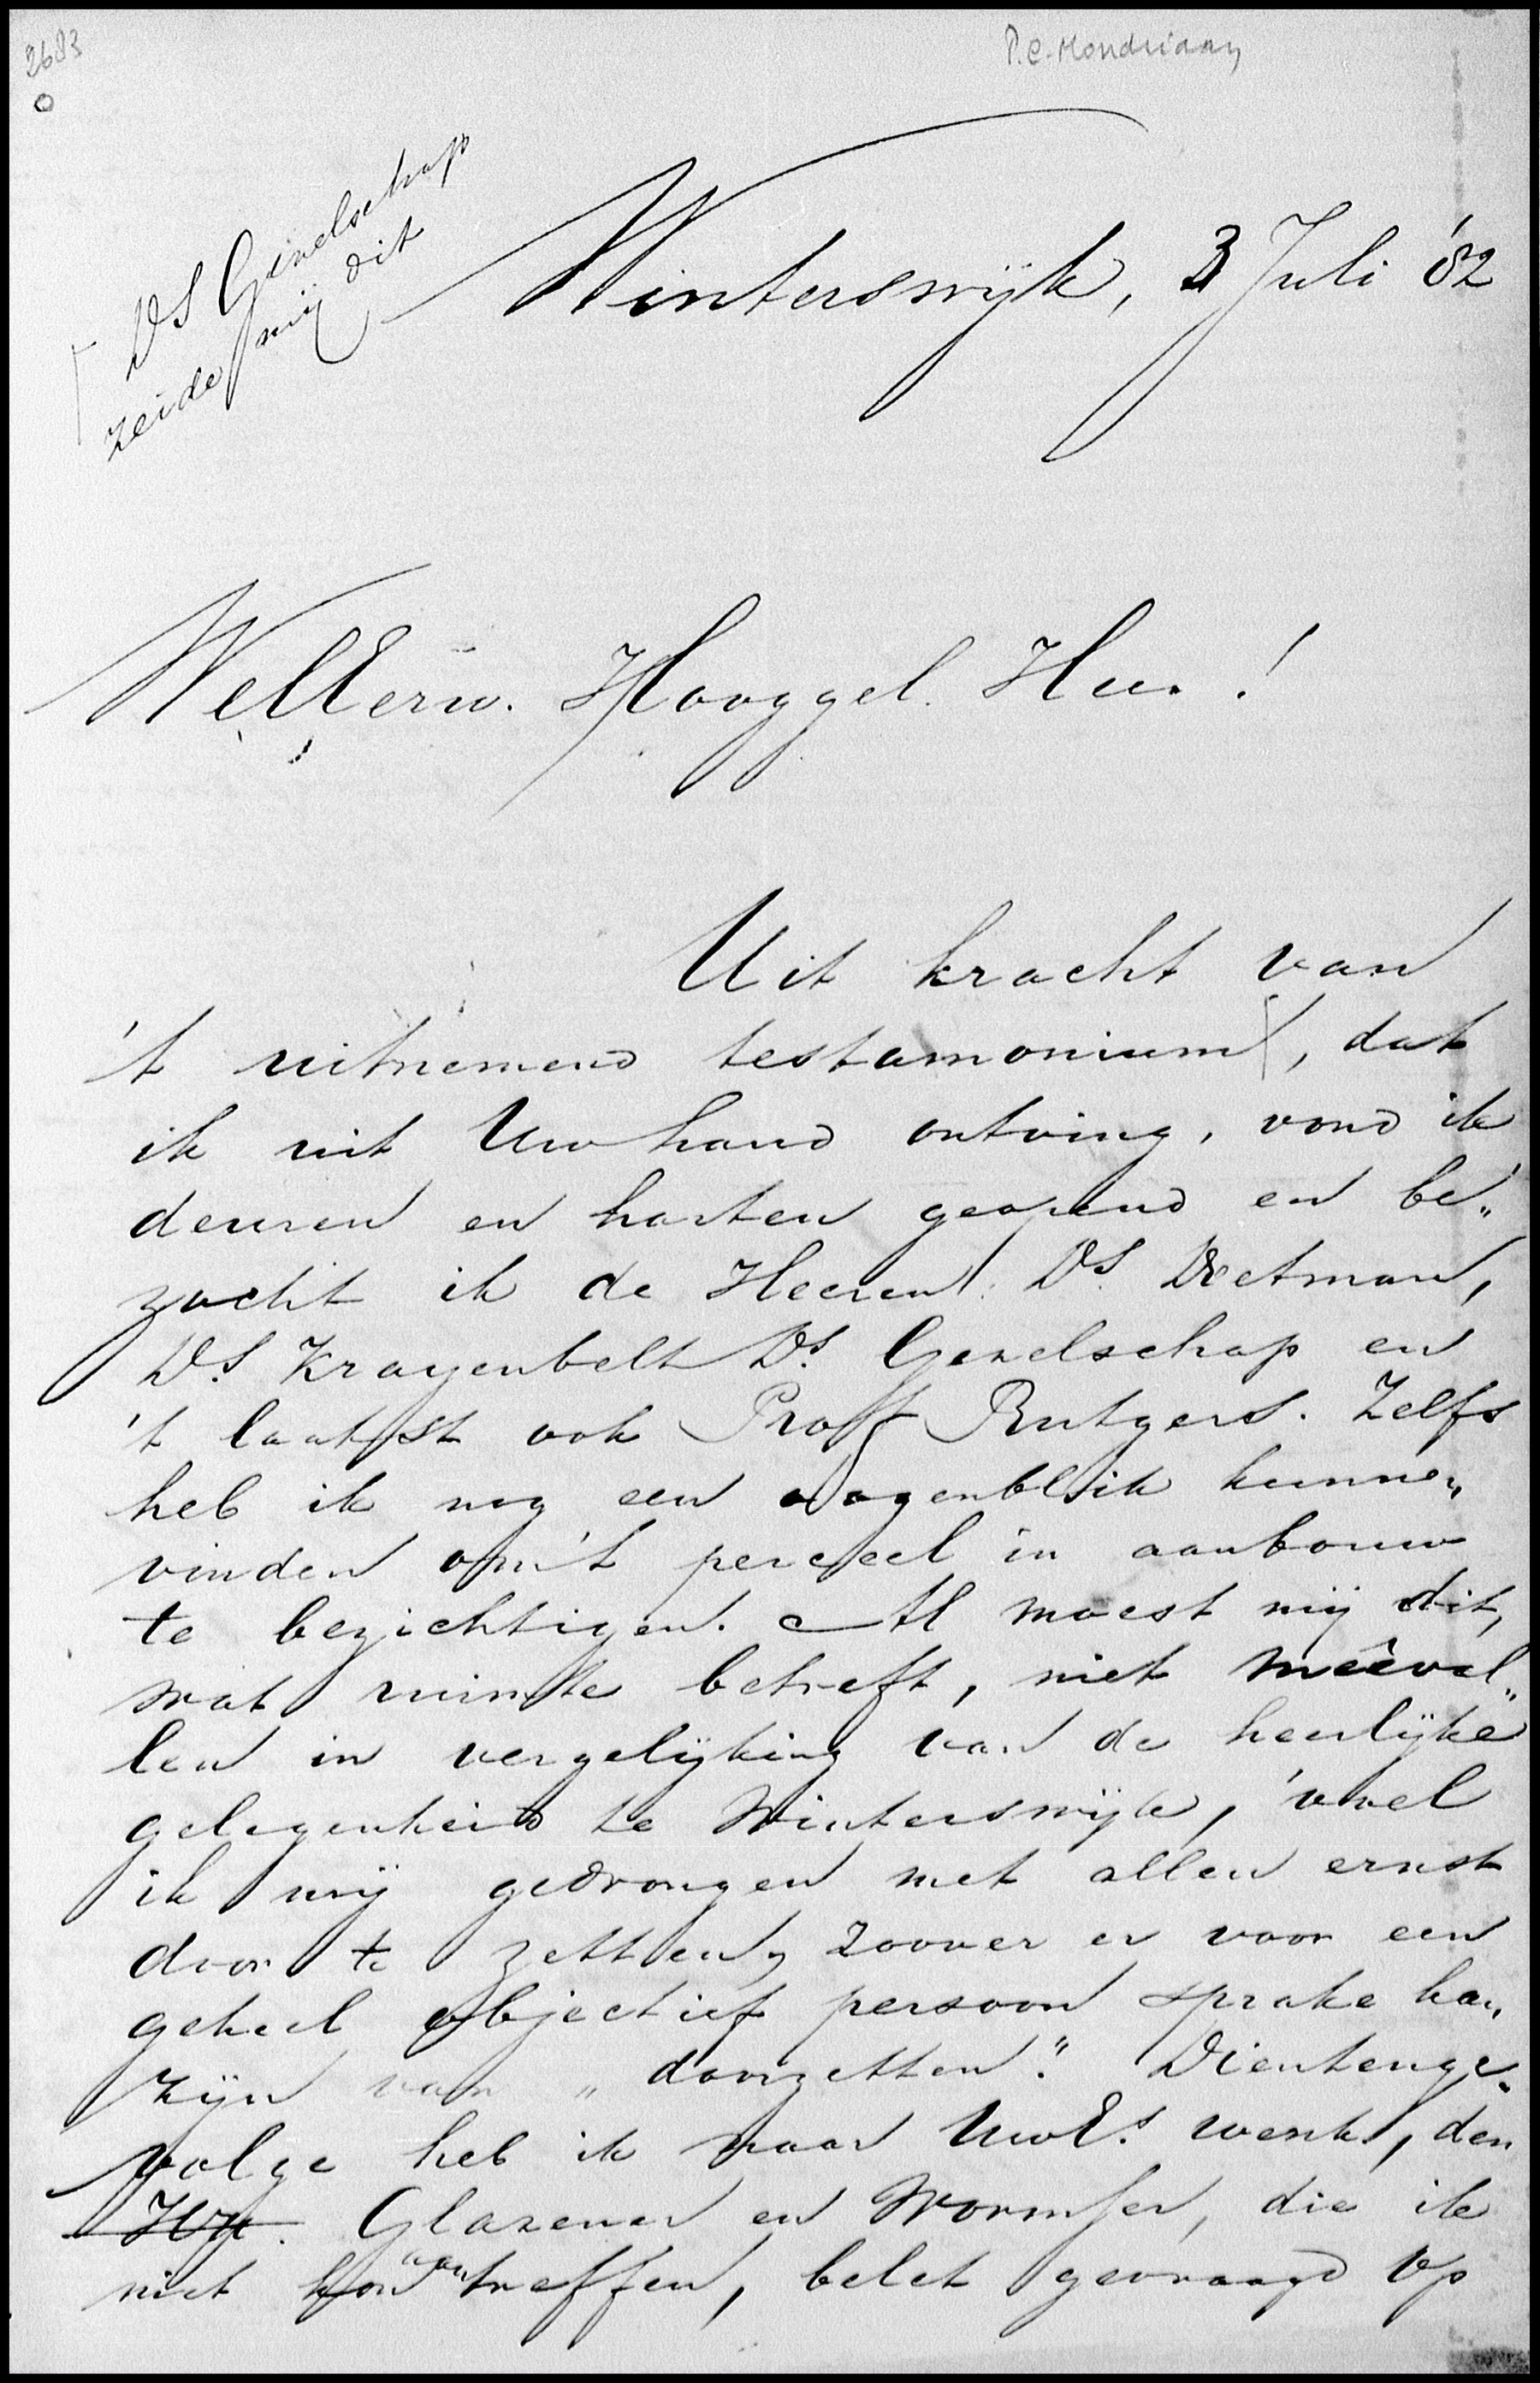 2683
P.C. Mondriaan
DS Gezelschap
zeide mij dit
Winterswijk, 3 Juli '82
WelEerw. Hooggel. Heer!
Uit kracht van
't uitnemend testamonium, dat
ik uit Uw hand ontving, vond ik
deuren en harten geopend en be„
zocht ik de Heeren: Ds.
Ds. Krayenbelt Ds. Gezelschap en
't laatst ook Proff Rutgers. Zelfs
heb ik nog een oogenblik kunnen
vinden om 't perceel in aanbouw
te bezichtigen. Al moest mij dit,
wat ruimte betreft, niet meêval„
len in vergelijking van de heerlijke
gelegenheid te Winterswijk, voel
ik mij gedrongen met allen ernst
door te zetten, zoover er voor een
geheel objectief persoon sprake kan
zijn van „doorzetten." Dientenge„
volge heb ik naar UwEs. wenk, den
Glazener en Wormser, die ik
niet kon aantreffen, belet gevraagd op